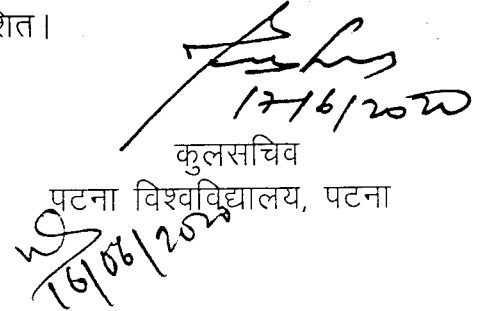 शित।
17/6/2020
कुलसचिव
पटना विश्वविद्यालय, पटना
16/06/2020